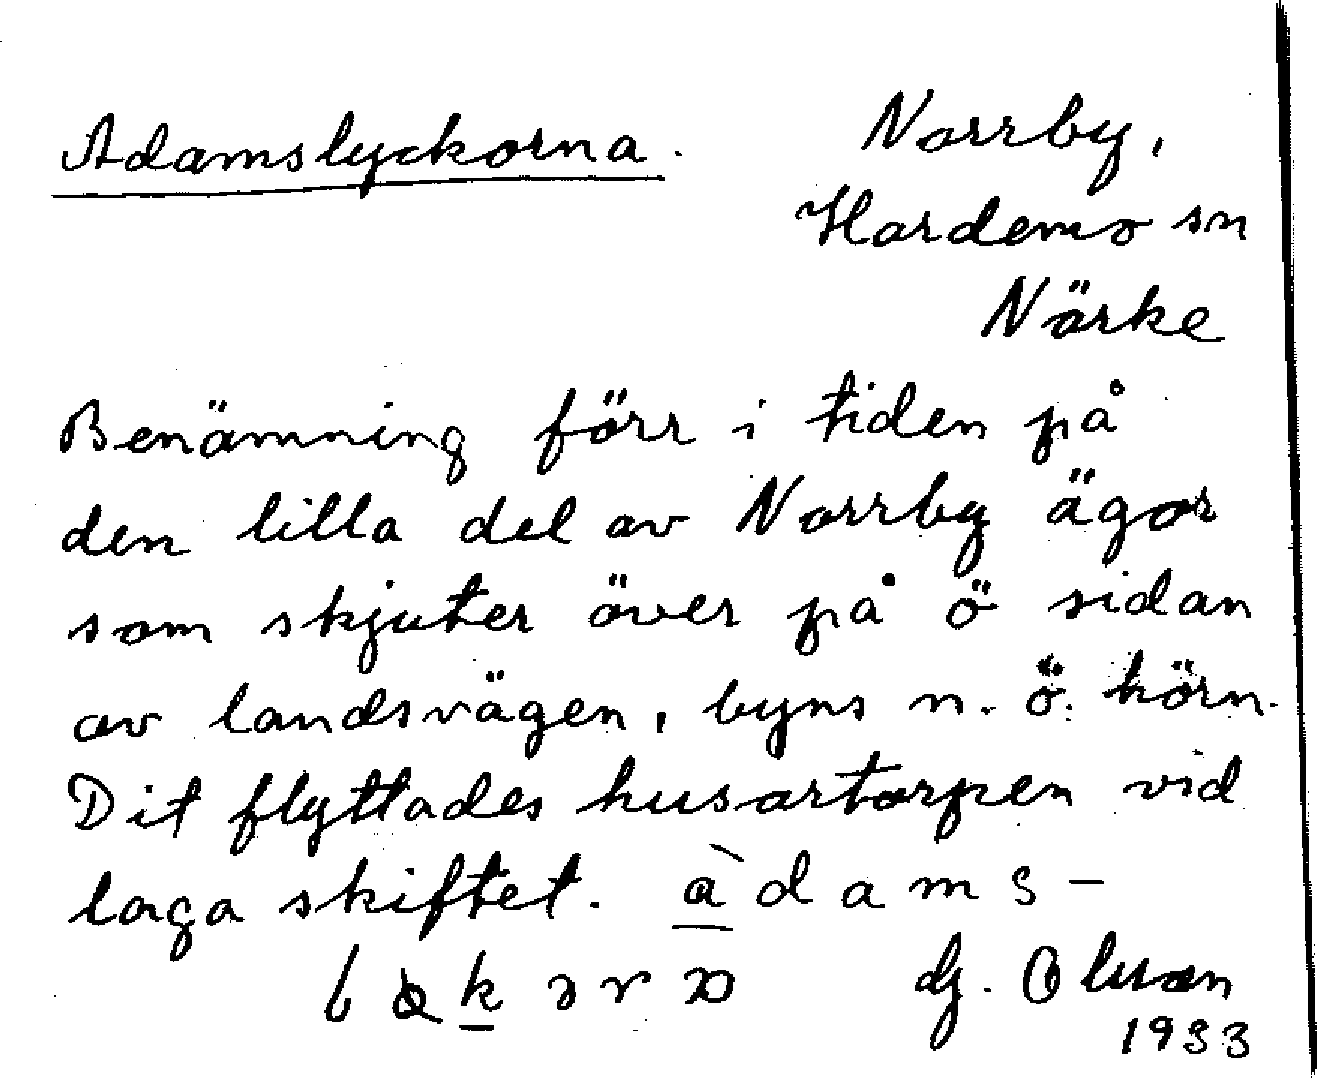 Adamslyckorna.
Norrby,
Hardemo sn
Närke
Benämning förr i tiden på
den lilla del av Norrby ägor
som skjuter över på ö sidan
av landsvägen, byns n. ö. hörn.
Dit flyttades husartorpen vid
laga skiftet. àdams-
1933